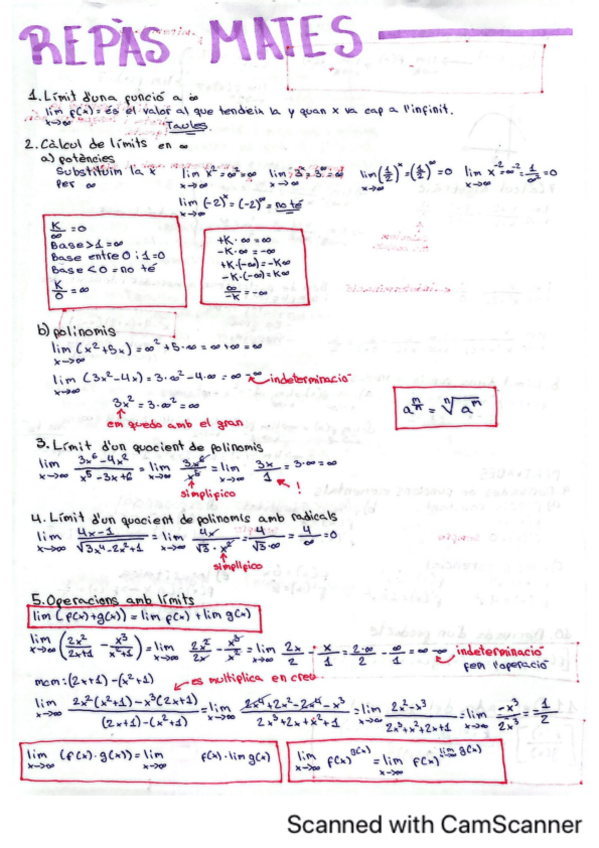 REPÀS MATES
1. Límit d'una funció a ∞
lim f(x) = és el valor al que tendeix la y quan x va cap a l'infinit.
x→∞
Taules
2. Càlcul de límits en ∞
a) potències
Substituïm la x per ∞
lim x² = ∞² = ∞ lim 3ˣ = 3^∞ = ∞ lim (1/2)ˣ = (1/2)^∞ = 0 lim x⁻² = ∞⁻² = 1/∞² = 0
x→∞ x→∞ x→∞ x→∞
lim (-2)ˣ = (-2)^∞ = no té
x→∞
K/∞ = 0
Base > 1 = ∞
Base entre 0 i 1 = 0
Base < 0 = no té
K/0 = ∞
+K·∞ = ∞
-K·∞ = -∞
+K·(-∞) = -K∞
-K·(-∞) = K∞
∞/-K = -∞
b) polinomis
lim (x²+5x) = ∞² + 5·∞ = ∞+∞ = ∞
x→∞
lim (3x²-4x) = 3·∞² - 4·∞ = ∞-∞ indeterminació
x→∞
3x² = 3·∞² = ∞
em quedo amb el gran
a^(m/n) = ⁿ√aᵐ
3. Límit d'un quocient de polinomis
lim (3x⁶-4x²)/(x⁵-3x+6) = lim 3x⁶/x⁵ = lim 3x/1 = 3·∞ = ∞
x→∞ x→∞ x→∞
simplifico !
4. Límit d'un quocient de polinomis amb radicals
lim (4x-1)/√(3x⁴-2x²+1) = lim 4x/(√3·x²) = 4/(√3·∞) = 4/∞ = 0
x→∞ x→∞
simplifico
5. Operacions amb límits
lim (f(x)+g(x)) = lim f(x) + lim g(x)
lim (2x²/(2x+1) - x³/(x²+1)) = lim 2x²/2x - x³/x² = lim 2x/2 - x/1 = 2·∞/2 - ∞/1 = ∞-∞ indeterminació
x→∞ x→∞ x→∞
fem l'operació
mcm: (2x+1)-(x²+1) es multiplica en creu
lim (2x²(x²+1)-x³(2x+1))/((2x+1)-(x²+1)) = lim (2x⁴+2x²-2x⁴-x³)/(2x³+2x+x²+1) = lim (2x²-x³)/(2x³+x²+2x+1) = lim -x³/2x³ = -1/2
x→∞ x→∞ x→∞ x→∞
lim (f(x)·g(x)) = lim f(x)·lim g(x)
x→∞ x→∞
lim f(x)^g(x) = lim f(x)^lim g(x)
x→∞ x→∞
Scanned with CamScanner